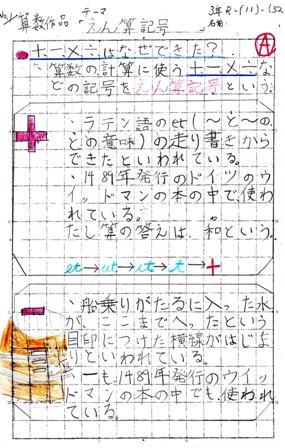 算数作品
テーマ
「えん算記号」
3年R-(11)-(32
名前
A
+-×÷はなぜできた?
算数の計算に使う+-×÷な
どの記号をえん算記号という。
+
・ラテン語のet(〜と〜の、
との意味)の走り書きから
できたといわれている。
・1489年発行のドイツのウ
イッドマンの本の中で使わ
れている。
たし算の答えは、和という。
et→ut→it→t→+
-
・船乗りがたるに入った水
が、ここまでへったという
目印につけた横線がはじま
りといわれている。
・-も、1489年発行のウイッ
ドマンの本の中でも使われ
ている。